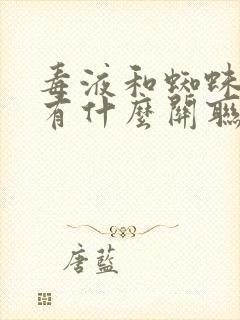 毒液和蜘蛛
有什麼關聯
唐藍